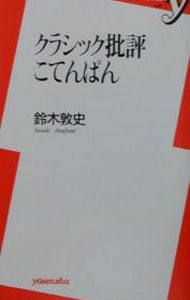 y
クラシック批評
こてんぱん
鈴木敦史
Suzuki Atsufumi
yosensha